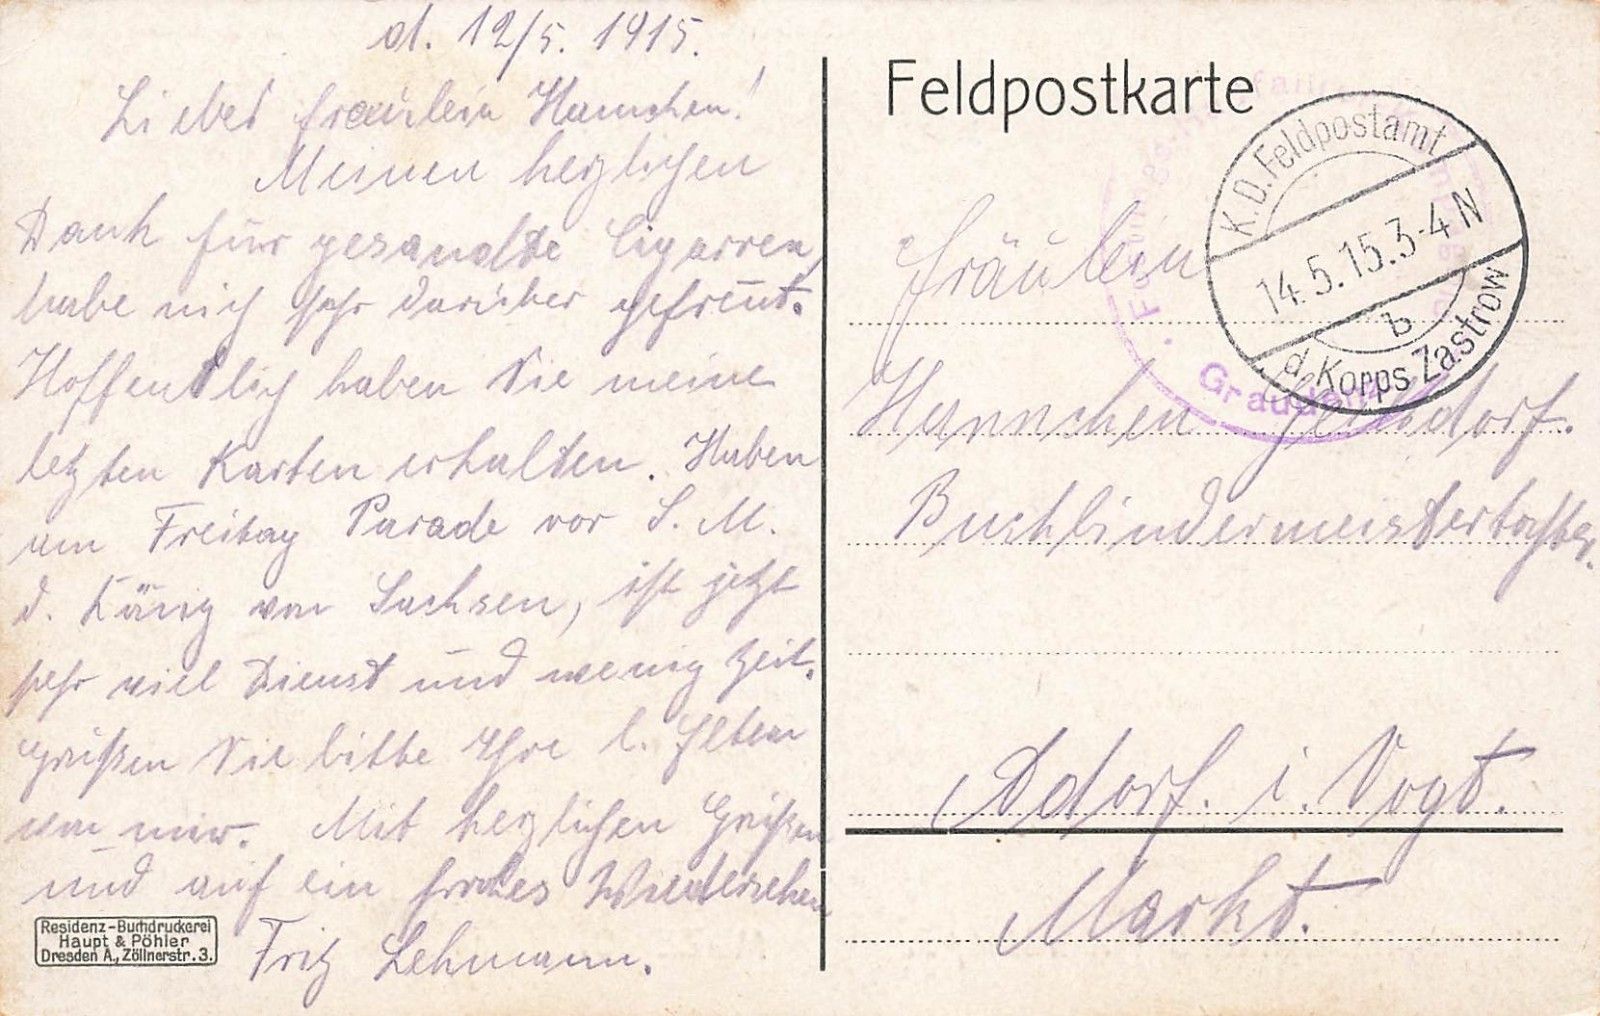 d. 12/5. 1915.
Liebes Fräulein Hannchen!
Meinen herzlichen
Dank für gesandte Cigarren,
habe mich sehr darüber gefreut.
Hoffentlich haben Sie meine
letzten Karten erhalten. Haben
am Freitag Parade vor S. M.
d. König von Sachsen, ist jetzt
sehr viel Dienst und wenig Zeit.
Grüßen Sie bitte Ihre l. Eltern
von mir. Mit herzlichen Grüßen
und auf ein frohes Wiedersehen
Fritz Lehmann.
Residenz-Buchdruckerei
Haupt & Pöhler
Dresden A., Zöllnerstr. 3.
Feldpostkarte
K. D. Feldpostamt
14.5.15.3-4 N
b
d. Korps Zastrow
Graudenz
Fräulein
Hannchen
Buchbindermeisterstochter.
Adorf. i. Vogt.
Markt.